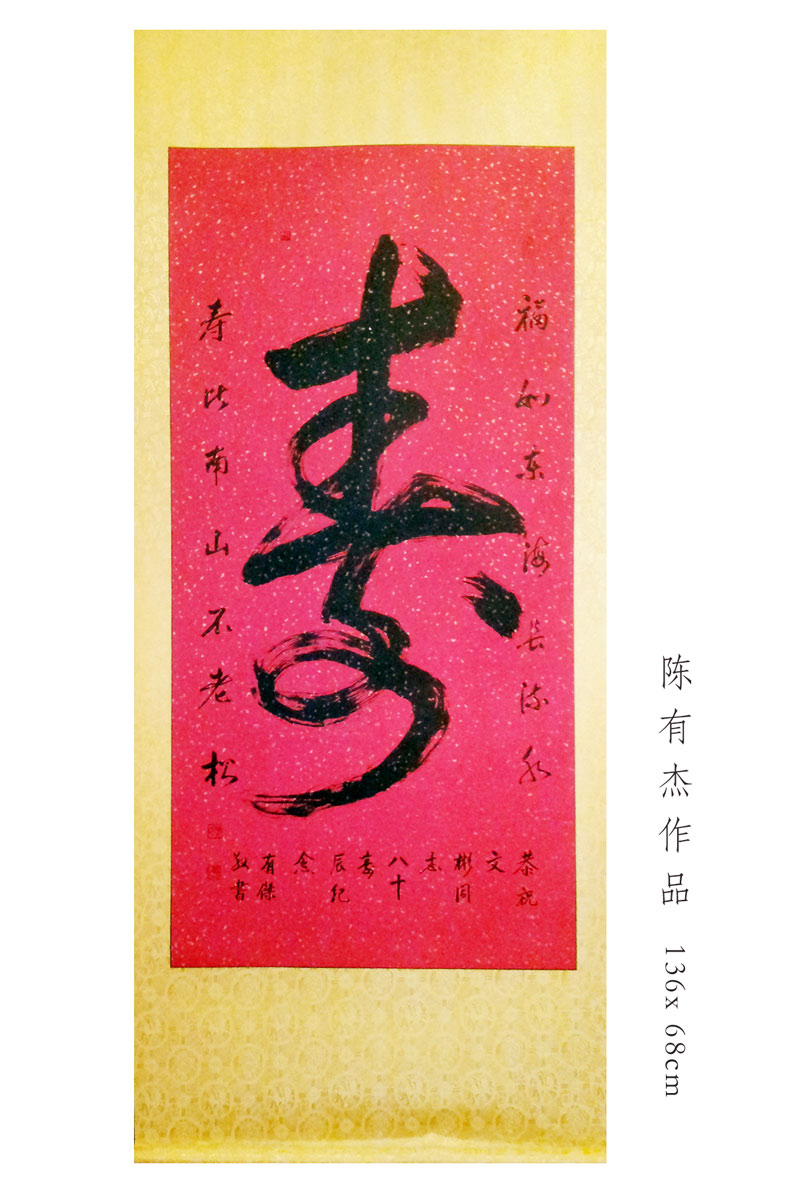 寿
福如东海长流水
寿比南山不老松
恭祝
文
彬同
志
八十
寿
辰纪
念
有傑
敬书
陈有杰作品 136x 68cm